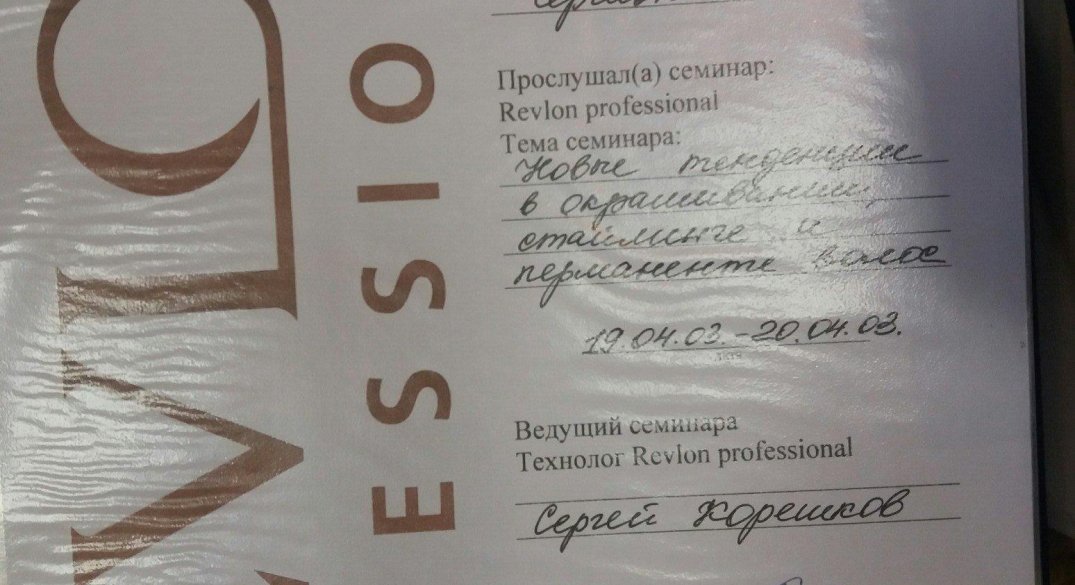 Прослушал(а) семинар:
Revlon professional
Тема семинара:
Новые тенденции
в окрашивании,
стайлинге и
перманенте волос
19.04.03.-20.04.03.
Ведущий семинара
Технолог Revlon professional
Сергей Корешков
VLO
ESSIO